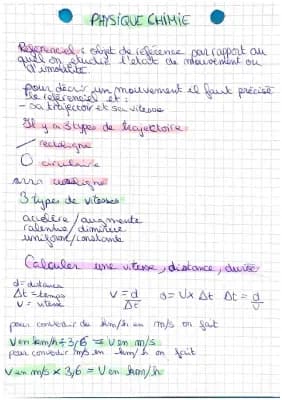 PHYSIQUE CHIMIE
Referenciel : objet de reference par rapport au
quel on etudie l'etat de mouvement ou
d'immobilité.
pour decrir un mouvement il faut précisé
le referenciel et :
- sa trajectoir et sa vitesse
Il y a 3 types de trajectoire
rectiligne
circulaire
curviligne
3 types de vitesses
accélère / augmente
ralentie / diminue
uniforme / constante
Calculer une vitesse, distance, durée
d = distance
Δt = temps
v = vitesse
v = d/Δt d = v x Δt Δt = d/v
pour convertir de km/h en m/s on fait
V en km/h ÷ 3,6 = V en m/s
pour convertir m/s en km/h on fait
V en m/s x 3,6 = V en km/h